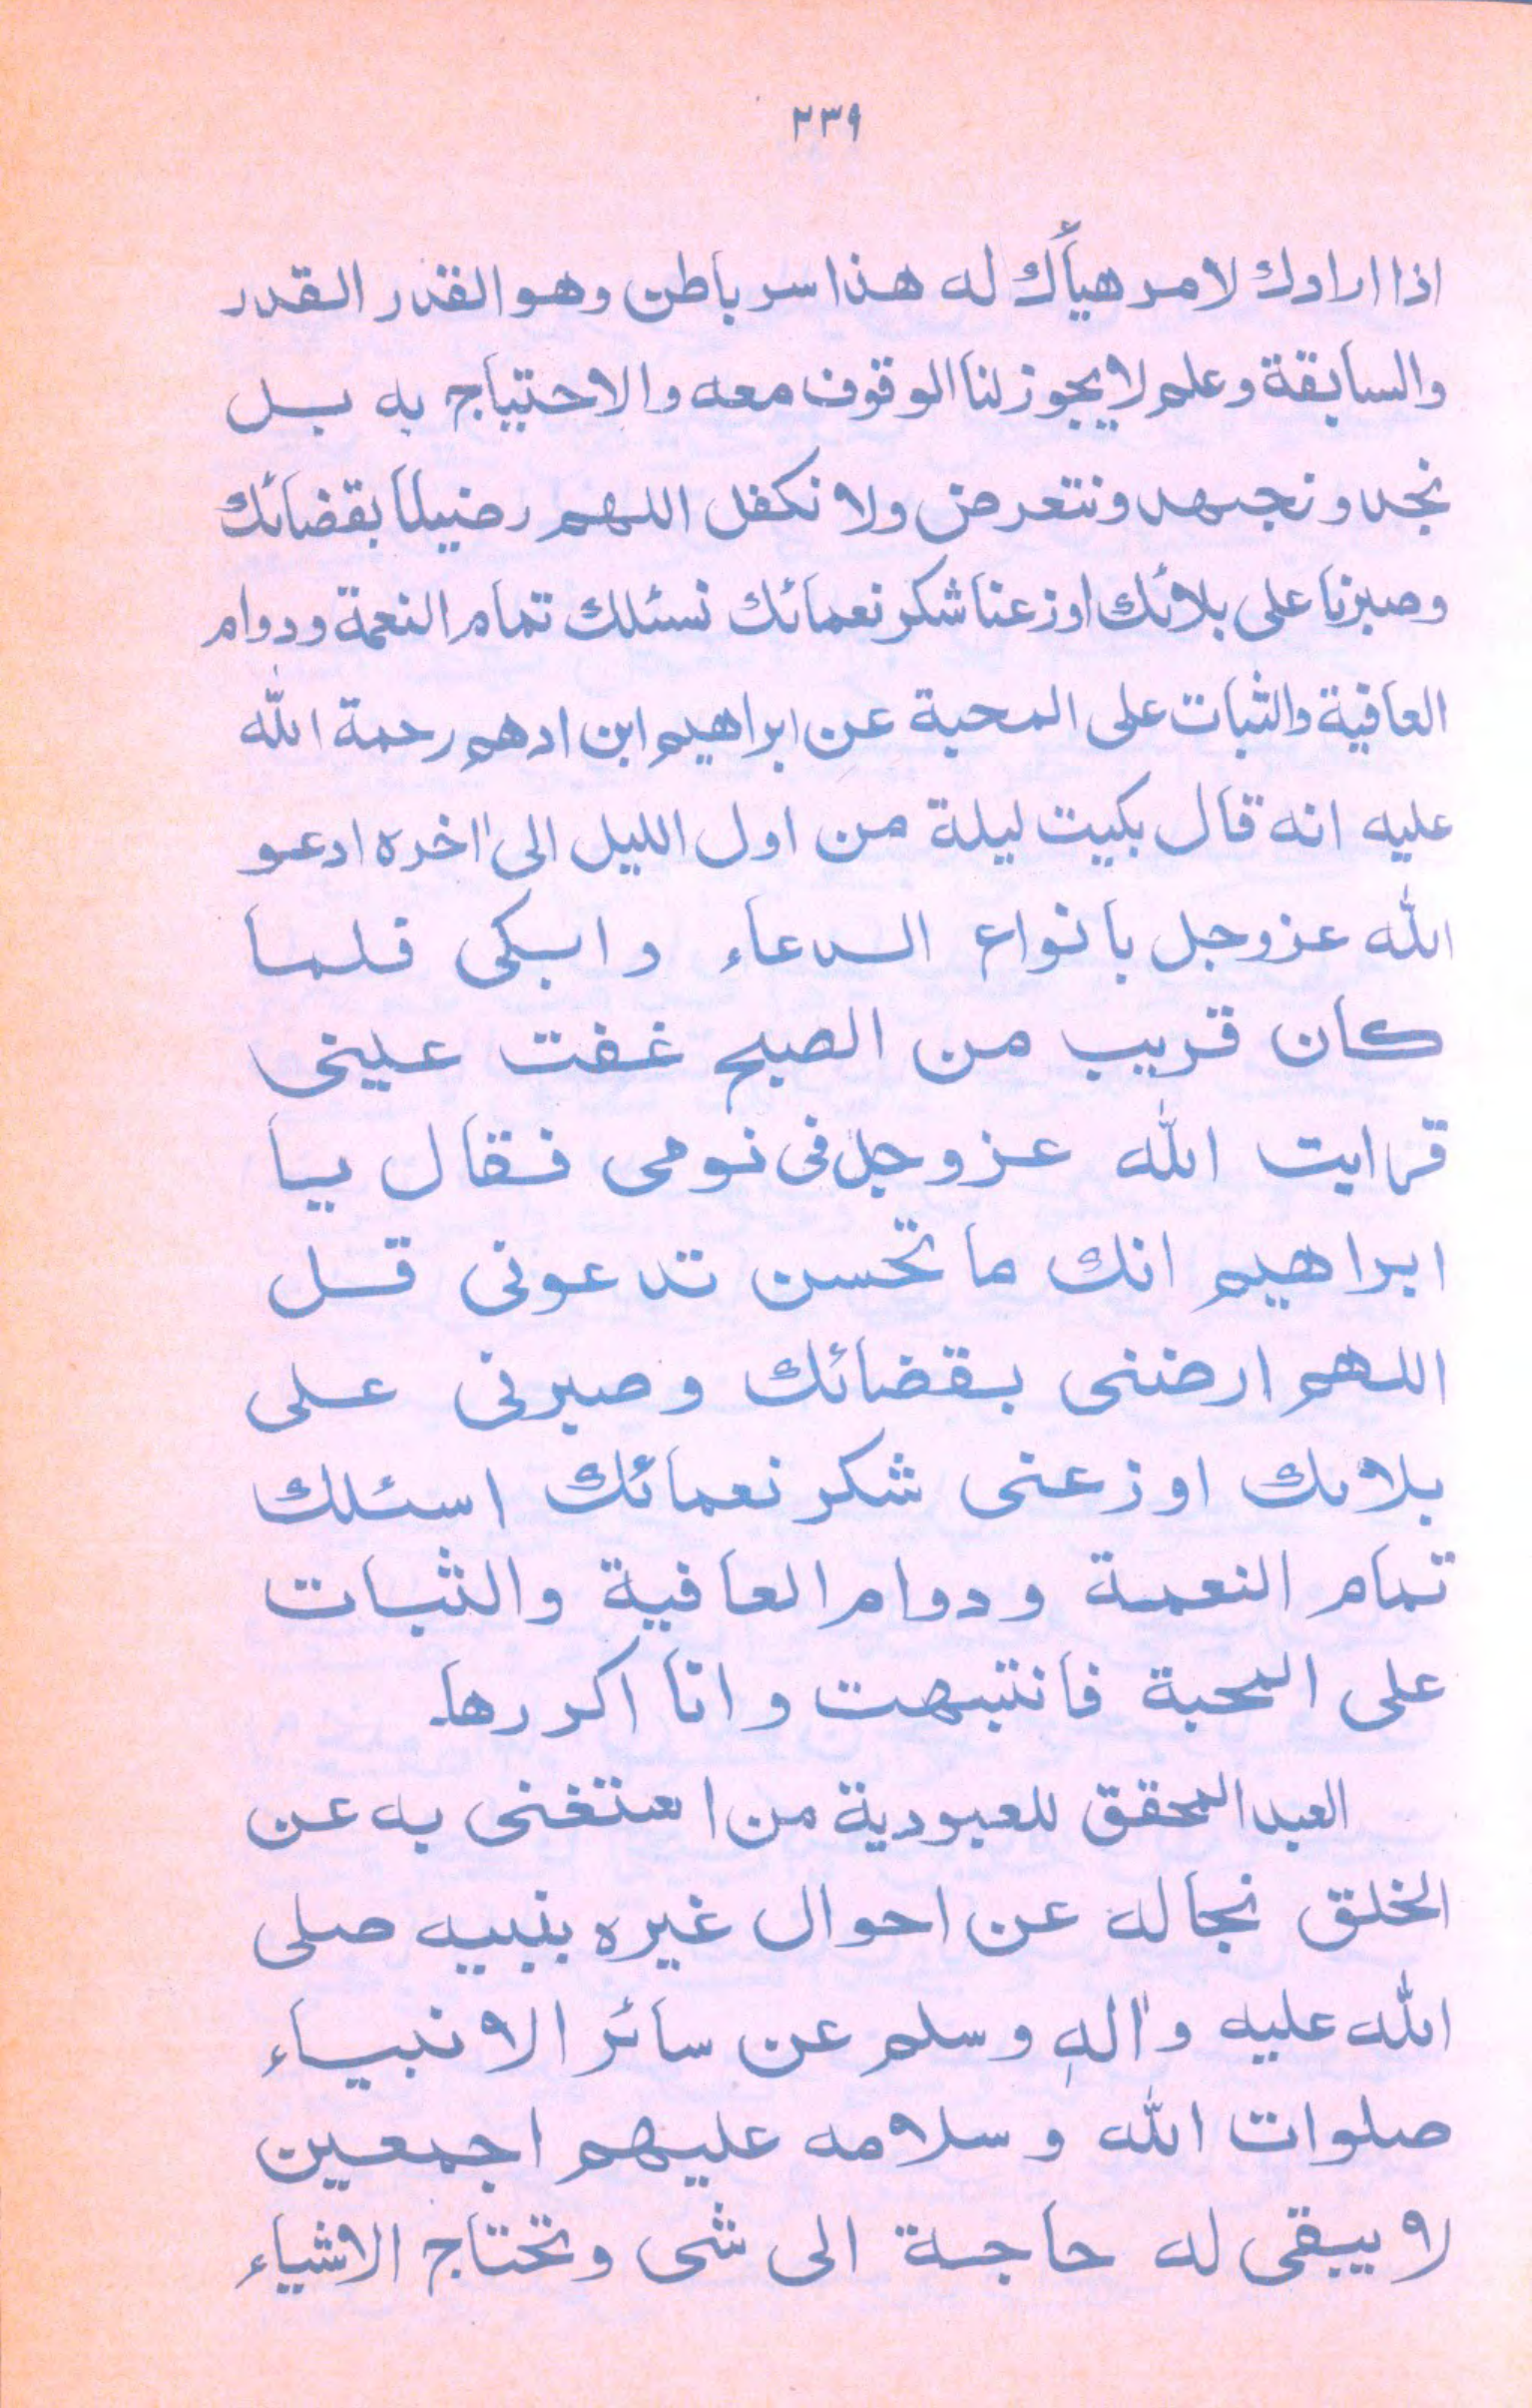 ٢٣٩
اذا ارادك لامر هيأك له هذا سر باطن وهو القدر القدر
والسابقة وعلم لا يجوز لنا الوقوف معه والاحتياج به بل
نجد ونجهد ونتعرض ولا نكفل اللهم رضينا بقضائك
وصبرنا على بلائك اوزعنا شكر نعمائك نسئلك تمام النعمة ودوام
العافية والثبات على المحبة عن ابراهيم ابن ادهم رحمة الله
عليه انه قال بكيت ليلة من اول الليل الى اخره ادعو
الله عزوجل بانواع الدعاء وابكى فلما
كان قريب من الصبح غفت عينى
فرايت الله عزوجل فى نومى فقال يا
ابراهيم انك ما تحسن تدعونى قل
اللهم ارضنى بقضائك وصبرنى على
بلائك اوزعنى شكر نعمائك اسئلك
تمام النعمة ودوام العافية والثبات
على المحبة فانتبهت وانا اكررها.
العبد المحقق للعبودية من استغنى به عن
الخلق نجاله عن احوال غيره بنبيه صلى
الله عليه واله وسلم عن سائر الانبياء
صلوات الله وسلامه عليهم اجمعين
لا يبقى له حاجة الى شى وتحتاج الاشياء